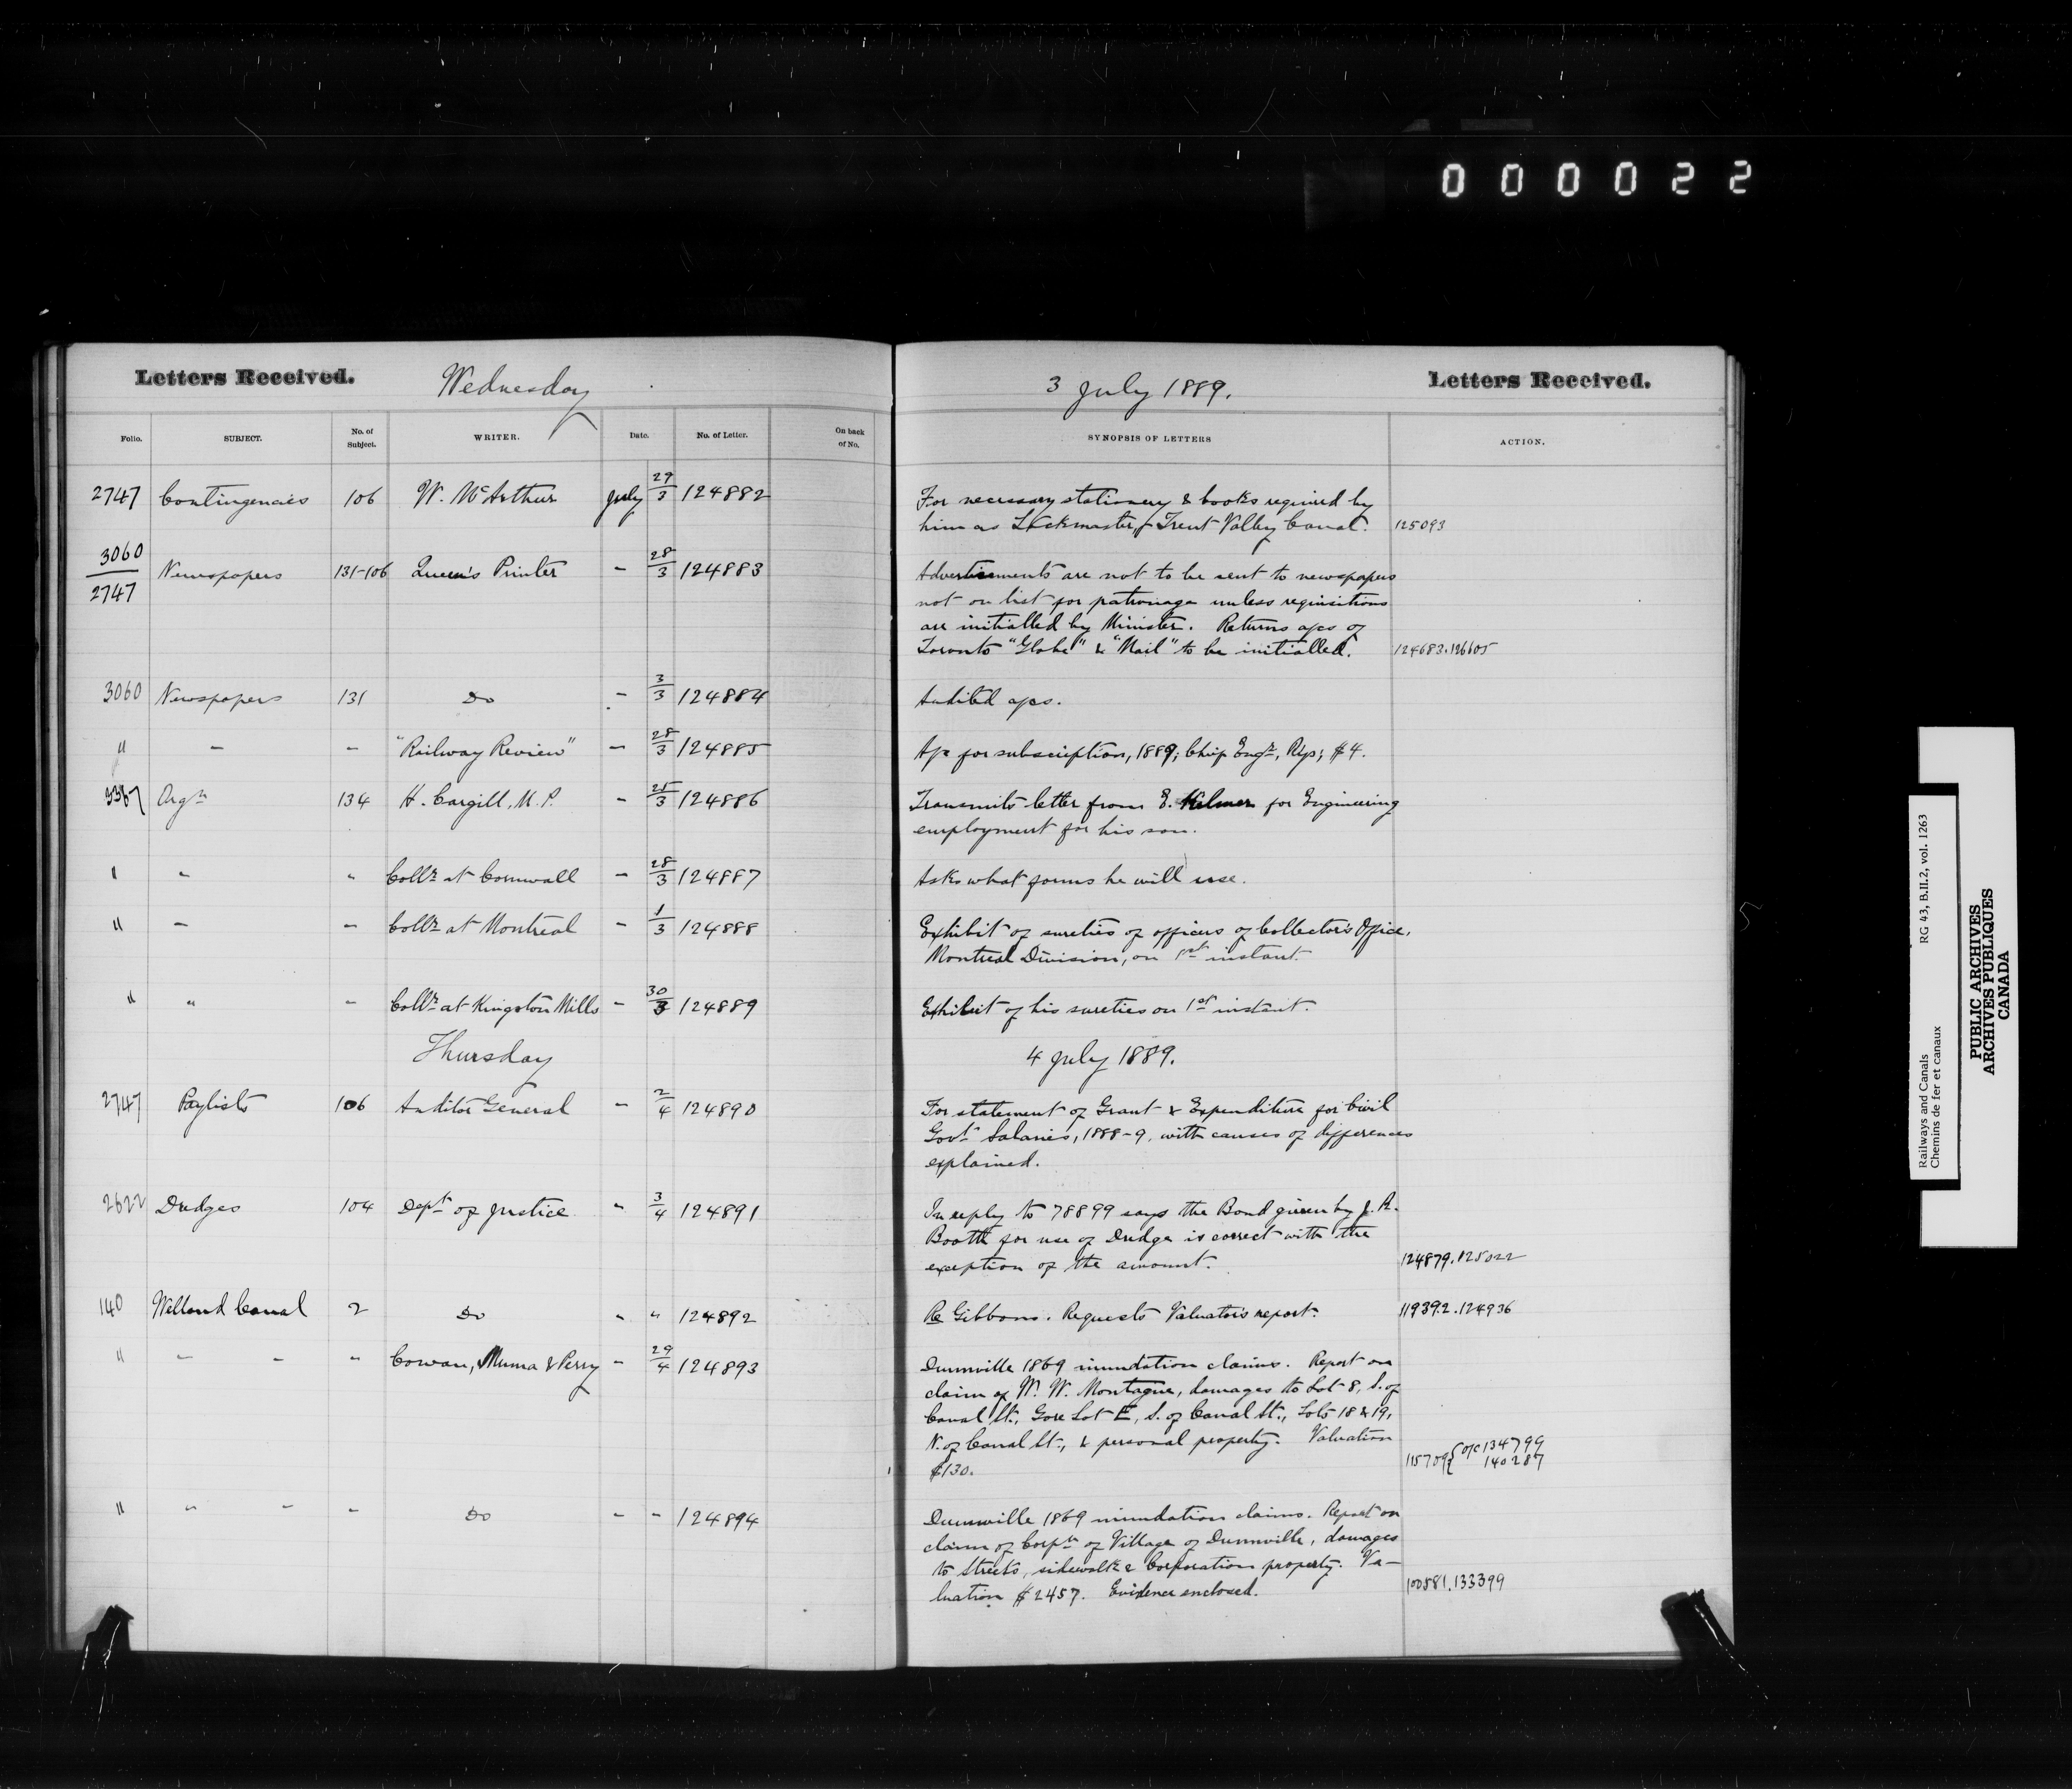 000022
Letters Received. Wednesday 3 July 1889. Letters Received.
Folio. SUBJECT. No. of Subject. WRITER. Date. No. of Letter. On back of No. SYNOPSIS OF LETTERS ACTION.
2747 Contingencies 106 W. McArthur July 29/3 124882 For necessary stationery & books required by
him as Lockmaster, Trent Valley Canal. 125093
3060/2747 Newspapers 131-106 Queen's Printer - 28/3 124883 Advertisements are not to be sent to newspapers
not on list for patronage unless requisitions
are initialled by Minister. Returns a/cs of
Toronto "Globe" & "Mail" to be initialled. 124683.126605
3060 Newspapers 131 Do - 3/3 124884 Audited a/cs.
" - - "Railway Review" - 28/3 124885 A/c for subscription, 1889; Chief Engr, Rys; $4.
3367 Orgn 134 H. Cargill, M.P. - 25/3 124886 Transmits letter from E. Kilmer for Engineering
employment for his son.
" " " Collr at Cornwall - 28/3 124887 Asks what forms he will use.
" - - Collr at Montreal - 1/3 124888 Exhibit of sureties of officers of Collector's Office,
Montreal Division, on 1st instant.
" " - Collr at Kingston Mills - 30/3 124889 Exhibit of his sureties on 1st instant.
Thursday 4 July 1889.
2747 Paylists 106 Auditor General - 2/4 124890 For statement of Grant & Expenditure for Civil
Govt Salaries, 1888-9, with causes of differences
explained.
2622 Dredges 104 Dept of Justice " 3/4 124891 In reply to 78899 says the Bond given by J. R.
Booth for use of Dredge is correct with the
exception of the amount. 124879.125022
140 Welland Canal 2 Do " " 124892 Re Gibbons. Requests Valuator's report. 119392.124936
" - - " Cowan, Muma & Perry - 29/4 124893 Dunnville 1869 inundation claims. Report on
claim of W. W. Montague, damages to Lot 8, S. of
Canal St., Gore Lot E, S. of Canal St., Lots 18 & 19,
N. of Canal St., & personal property. Valuation
$130. 115709 { O/C 134799
140287
" " " - Do - - 124894 Dunnville 1869 inundation claims. Report on
claim of Corpn of Village of Dunnville, damages
to Streets, sidewalks & Corporation property. Va-
luation $2457. Evidence enclosed. 100581.133399
Railways and Canals RG 43, B.II.2, vol. 1263
Chemins de fer et canaux
PUBLIC ARCHIVES
ARCHIVES PUBLIQUES
CANADA